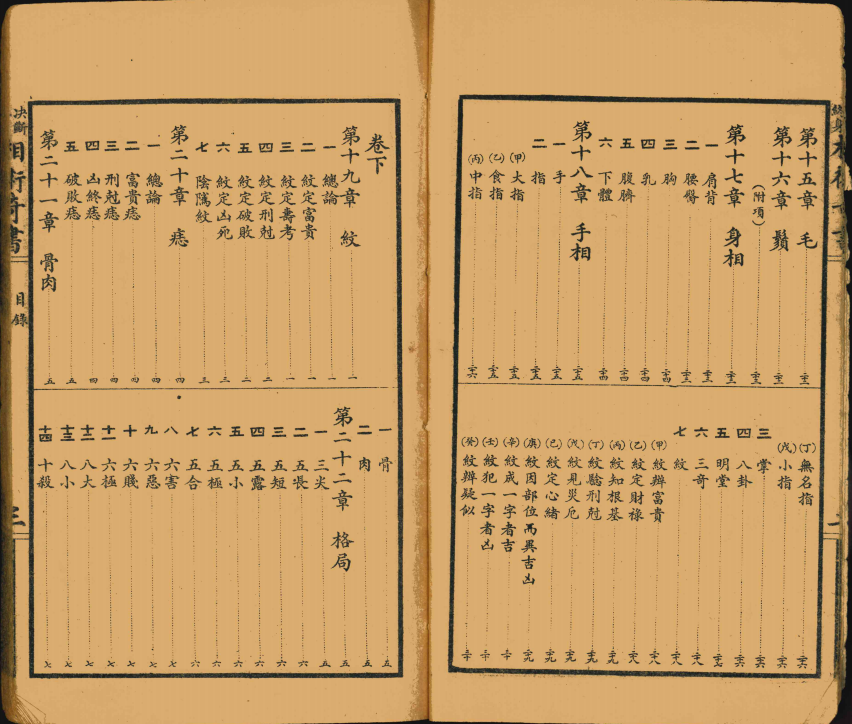 第十五章 毛
第十六章 鬚
(附項)
第十七章 身相
一 肩背
二 腰臀
三 胸
四 乳
五 腹臍
六 下體
第十八章 手相
一 手
二 指
(甲)大指
(乙)食指
(丙)中指
(丁)無名指
(戊)小指
三 掌
四 八卦
五 明堂
六 三奇
七 紋
(甲)紋辨富貴
(乙)紋定財祿
(丙)紋知根基
(丁)紋驗刑尅
(戊)紋見災厄
(己)紋定心緒
(庚)紋因部位而異吉凶
(辛)紋成一字者吉
(壬)紋犯一字者凶
(癸)紋辨疑似
卷下
第十九章 紋 一
一 總論 一
二 紋定富貴 一
三 紋定壽考 一
四 紋定刑尅 二
五 紋定破敗 二
六 紋定凶死 三
七 陰隲紋 三
第二十章 痣 四
一 總論 四
二 富貴痣 四
三 刑尅痣 四
四 凶終痣 四
五 破敗痣 五
第二十一章 骨肉 五
一 骨 五
二 肉 五
第二十二章 格局 五
一 三尖 五
二 五長 六
三 五短 六
四 五露 六
五 五小 六
六 五極 六
七 五合 六
八 六害 七
九 六惡 七
十 六賤 七
十一 六極 七
十二 八大 七
十三 八小 七
十四 十殺 七
決斷 相術奇書
目錄
三